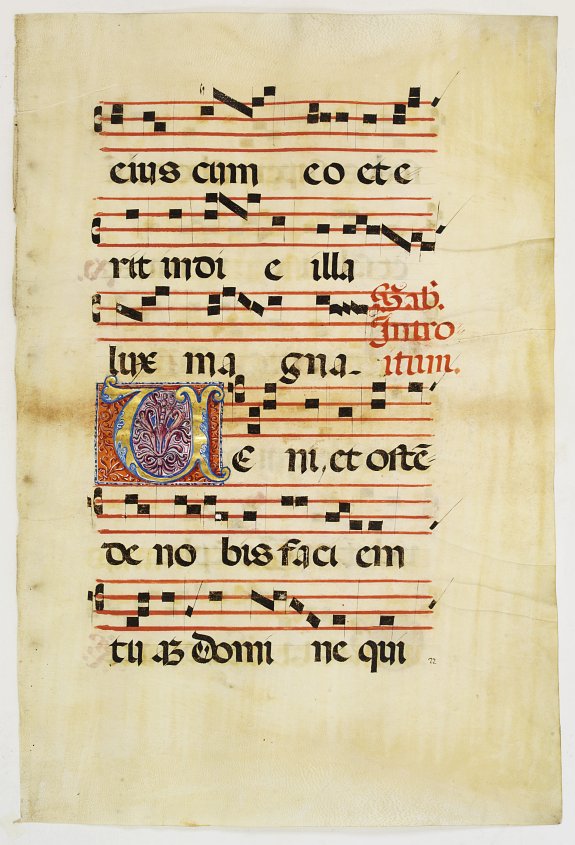 eius cum eo et e
rit in di e illa
lux ma gna. Sab.
Intro
itum.
VE ni, et ostē
de no bis faci em
tu am Domi ne qui
72